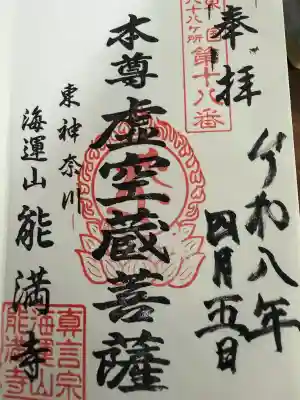 奉拝
第十八番
八十八ヶ所
令和八年
四月五日
本尊 虚空蔵菩薩
東神奈川
海運山 能満寺
真言宗
海運山
能満寺